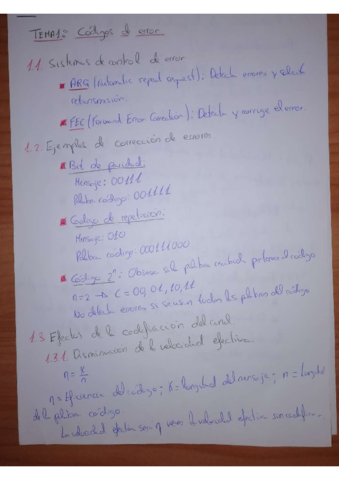 TEMA 1: Códigos de error
1.1. Sistemas de control de error
ARQ (automatic repeat request): Detecta errores y solicita
retransmisión.
FEC (Forward Error Correction): Detecta y corrige el error.
1.2. Ejemplos de corrección de errores
Bit de paridad:
Mensaje: 00111
Palabra código: 001111
Código de repetición:
Mensaje: 010
Palabra código: 000111000
Código 2ⁿ: Observa si la palabra recibida pertenece al código
n=2 → C = 00, 01, 10, 11
No detecta errores si se usan todas las palabras del código
1.3 Efectos de la codificación del canal
1.3.1. Disminución de la velocidad efectiva.
η = k/n
η = Eficiencia del código; k = longitud del mensaje; n = longitud
de la palabra código.
La velocidad efectiva será η veces la velocidad efectiva sin codificar.